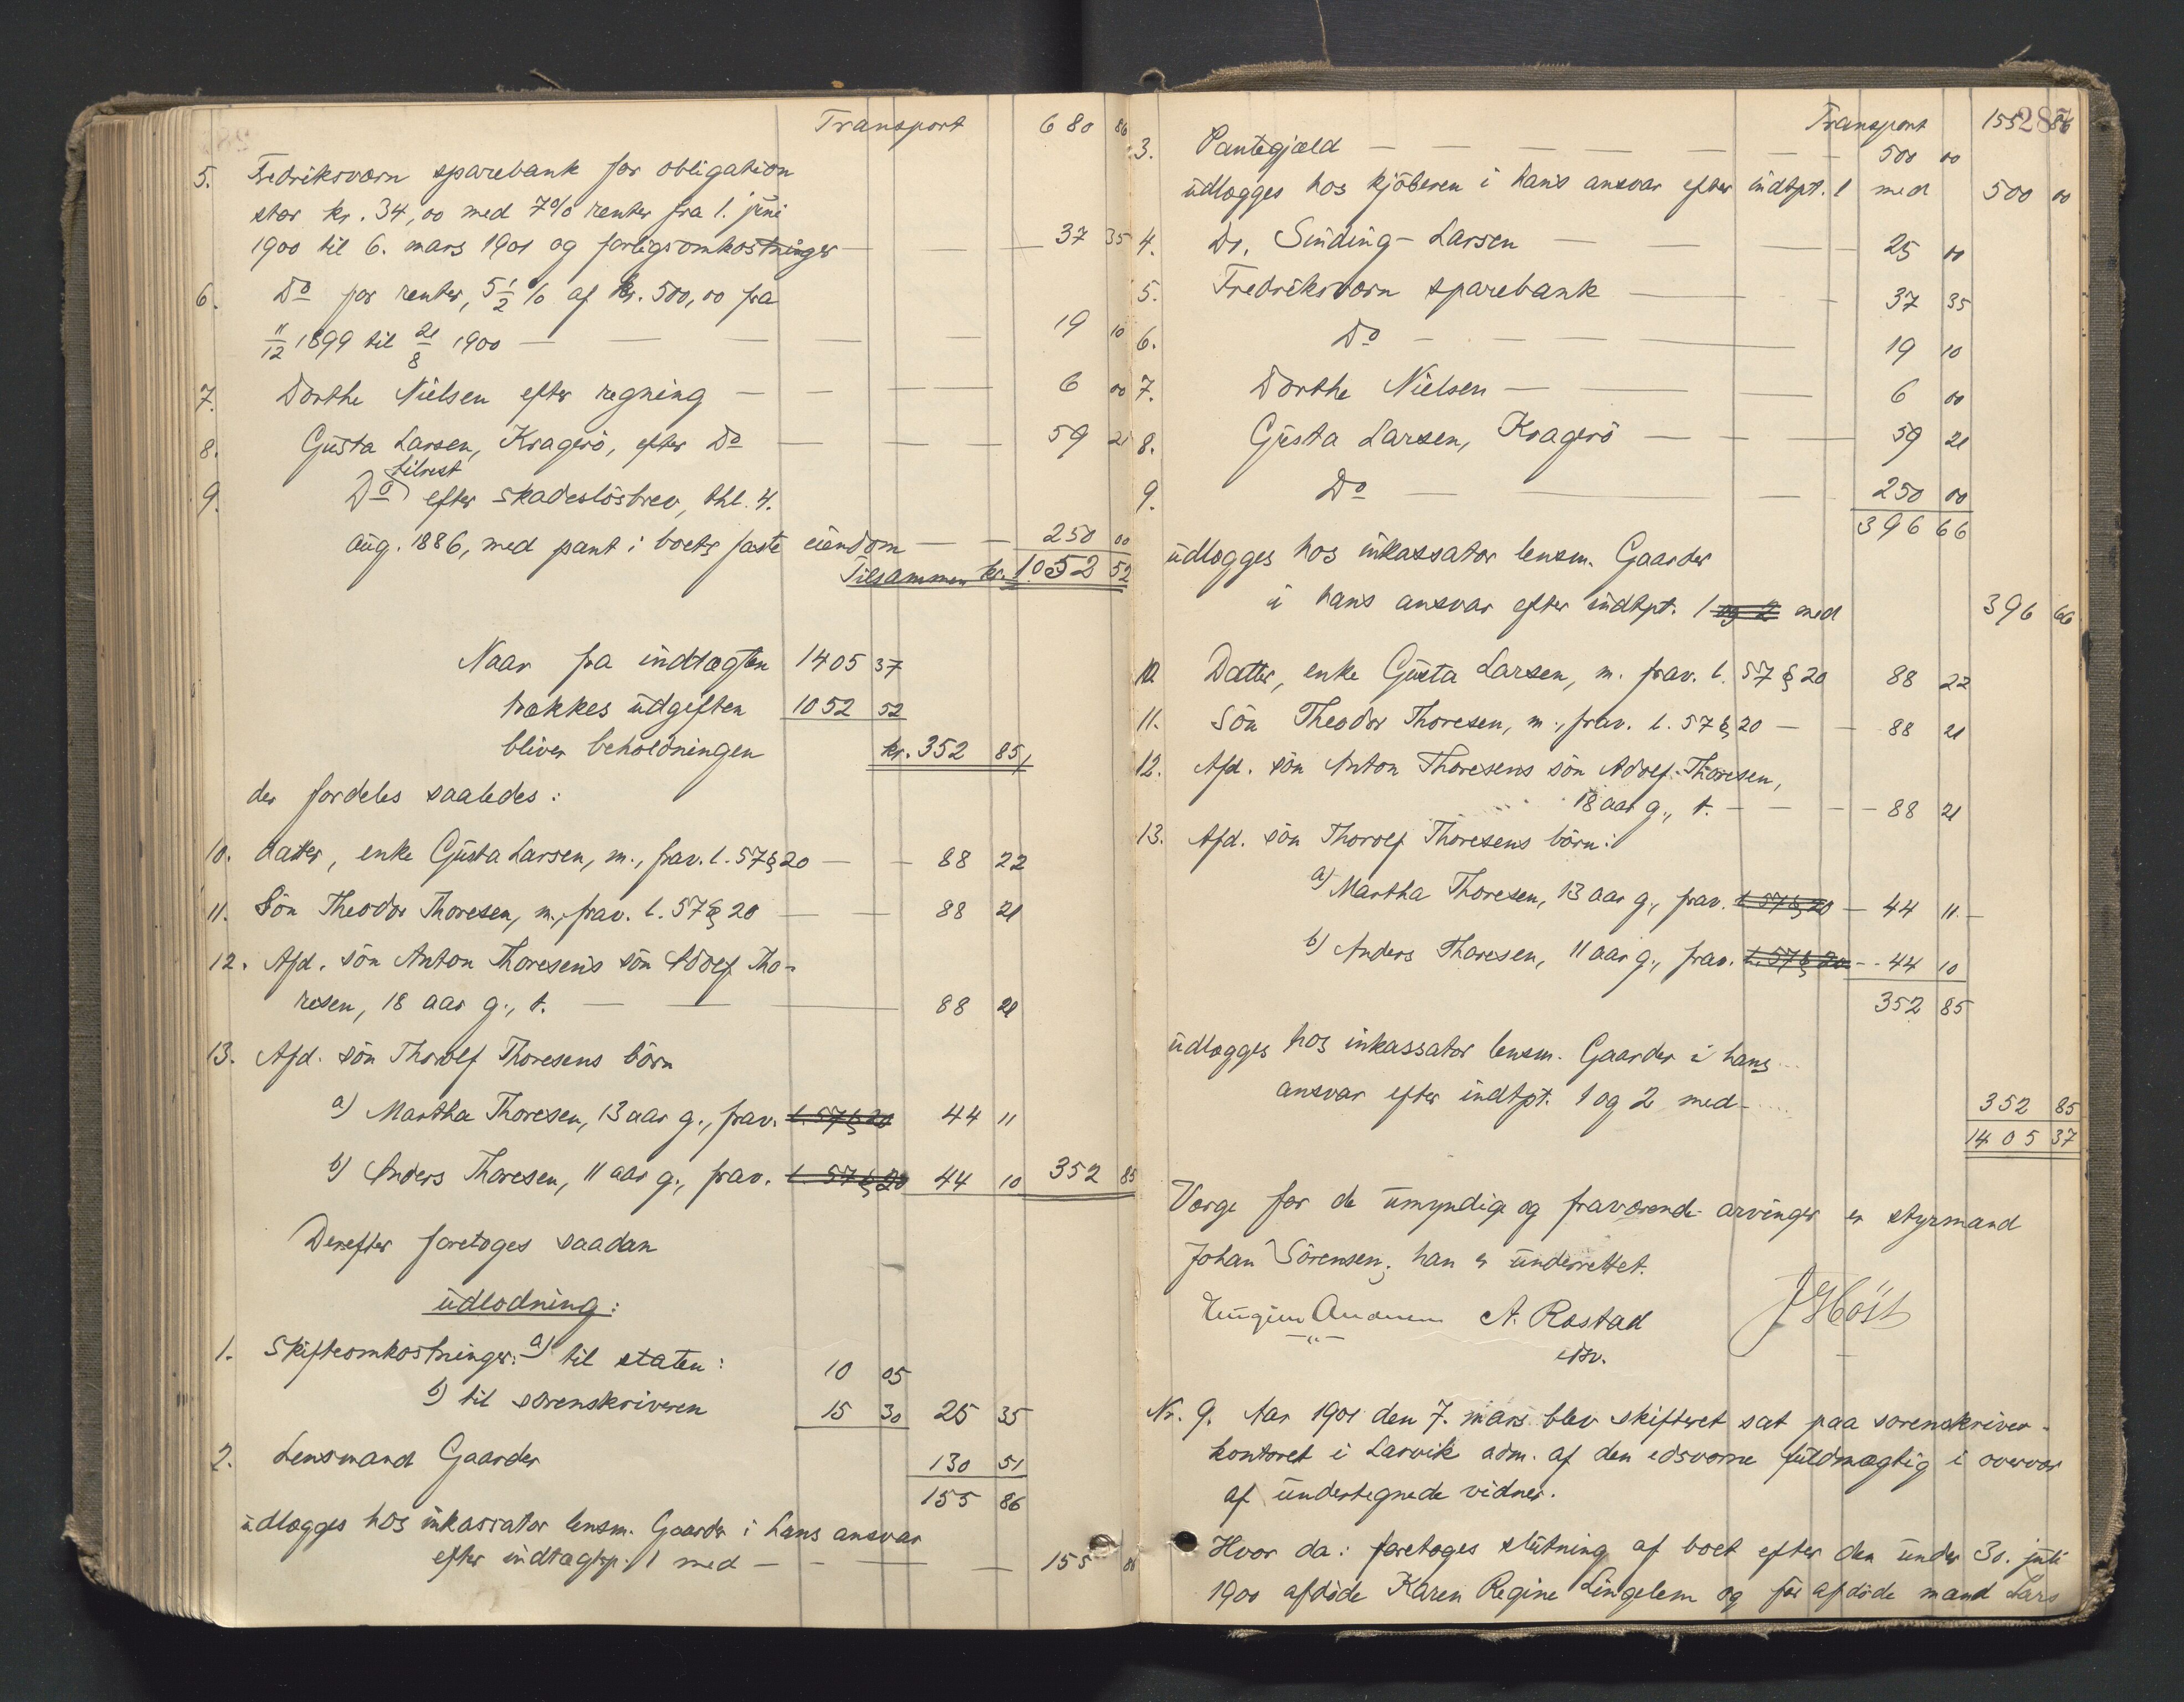 Transport 680 86
5. Fredriksværn sparebank for obligation
stor kr. 34,00 med 7% renter fra 1. juni
1900 til 6. mars 1901 og forligsomkostninger — 37 35
6. Do for renter, 5 1/2 % af kr. 500,00 fra
11/12 1899 til 21/8 1900 — 19 10
7. Dorthe Nielsen efter regning — 6 00
8. Gusta Larsen, Kragerö, efter Do — 59 21
tilrest
9. Do efter skadeslösbrev, thl. 4.
aug. 1886, med pant i boets faste eiendom — 250 00
Tilsammen kr. 1052 52
Naar fra indtægten 1405 37
trækkes udgiften 1052 52
bliver beholdningen kr. 352 85,
der fordeles saaledes:
10. datter, enke Gusta Larsen, m., frav. l. 57 § 20 — 88 22
11. Sön Theodor Thoresen, m., frav. l. 57 § 20 — 88 21
12. Afd. sön Anton Thoresens sön Adolf Tho-
resen, 18 aar g., t. — 88 21
13. Afd. sön Thorolf Thoresens börn
a) Martha Thoresen, 13 aar g., frav. l. 57 § 20 44 11
b) Anders Thoresen, 11 aar g., frav. l. 57 § 20 44 10 352 85
Derefter foretoges saadan
udlodning:
1. Skifteomkostninger: a) til staten: 10 05
b) til sorenskriveren 15 30 25 35
2. Lensmand Gaarder 130 51
155 86
udlægges hos inkassator lensm. Gaarder i hans ansvar
efter indtægtsp. 1 med — 155 86
287
Transport 155 86
3. Pantegjæld — 500 00
udlægges hos kjöberen i hans ansvar efter indtpt. 1 med 500 00
4. Dr. Sinding-Larsen — 25 00
5. Fredriksværn sparebank — 37 35
6. Do — 19 10
7. Dorthe Nielsen — 6 00
8. Gusta Larsen, Kragerö — 59 21
9. Do — 250 00
396 66
udlægges hos inkassator lensm. Gaarder
i hans ansvar efter indtpt. 1 og 2 med 396 66
10. Datter, enke Gusta Larsen, m. frav. l. 57 § 20 88 22
11. Sön Theodor Thoresen, m., frav. l. 57 § 20 — 88 21
12. Afd. sön Anton Thoresens sön Adolf Thoresen,
18 aar g., t. — 88 21
13. Afd. sön Thorolf Thoresens börn:
a) Martha Thoresen, 13 aar g., frav. l. 57 § 20 — 44 11
b) Anders Thoresen, 11 aar g., frav. l. 57 § 20 — 44 10
352 85
udlægges hos inkassator lensm. Gaarder i hans
ansvar efter indtpt. 1 og 2 med — 352 85
1405 37
Værge for de umyndige og fraværende arvinger er styrmand
Johan Sörensen; han er underrettet.
A. Rostad J Höst
Nr. 9. Aar 1901 den 7. mars blev skifteret sat paa sorenskriver-
kontoret i Larvik adm. af den edsvorne fuldmægtig i overvær
af undertegnede vidner.
Hvor da: foretoges slutning af boet efter den under 30. juli
1900 afdöde Karen Regine Lingelem og før afdöde mand Lars